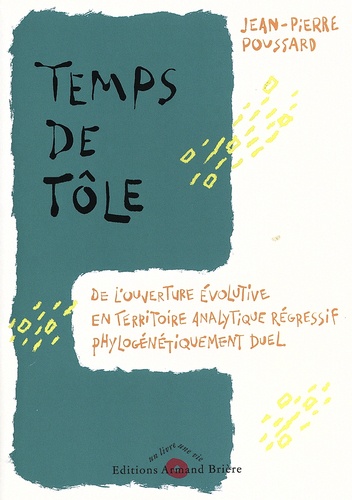 JEAN-PIERRE
POUSSARD
TEMPS
DE
TÔLE
DE L'OUVERTURE ÉVOLUTIVE
EN TERRITOIRE ANALYTIQUE RÉGRESSIF
PHYLOGÉNÉTIQUEMENT DUEL
un livre une vie
Editions Armand Brière